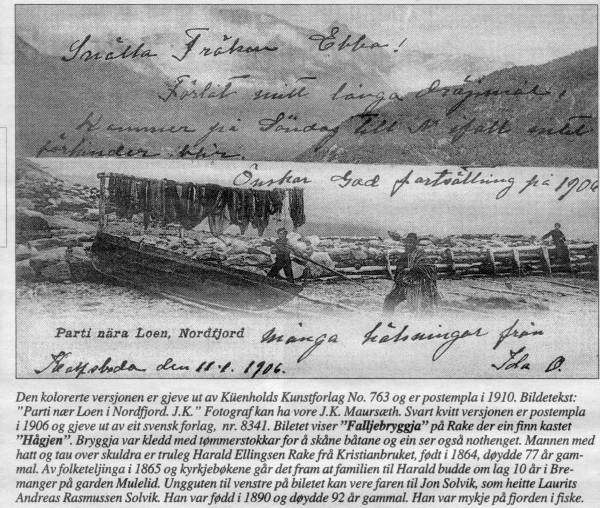 Snälla Fröken Ebba!
Förlåt mitt långa dröjsmål!
Kommer på Söndag till N ifall intet
förhinder blir.
Önskar God fortsättning på 1906
Parti nära Loen, Nordfjord
Många hälsningar från
den 11-1. 1906.
Ida O.
Den kolorerte versjonen er gjeve ut av Küenholds Kunstforlag No. 763 og er postempla i 1910. Bildetekst:
"Parti nær Loen i Nordfjord. J.K." Fotograf kan ha vore J.K. Maursæth. Svart kvitt versjonen er postempla
i 1906 og gjeve ut av eit svensk forlag, nr. 8341. Biletet viser "Falljebryggja" på Rake der ein finn kastet
"Hågjen". Bryggja var kledd med tømmerstokkar for å skåne båtane og ein ser også nothenget. Mannen med
hatt og tau over skuldra er truleg Harald Ellingsen Rake frå Kristianbruket, født i 1864, døydde 77 år gam-
mal. Av folketeljinga i 1865 og kyrkjebøkene går det fram at familien til Harald budde om lag 10 år i Bre-
manger på garden Mulelid. Ungguten til venstre på biletet kan vere faren til Jon Solvik, som heitte Laurits
Andreas Rasmussen Solvik. Han var født i 1890 og døydde 92 år gammal. Han var mykje på fjorden i fiske.